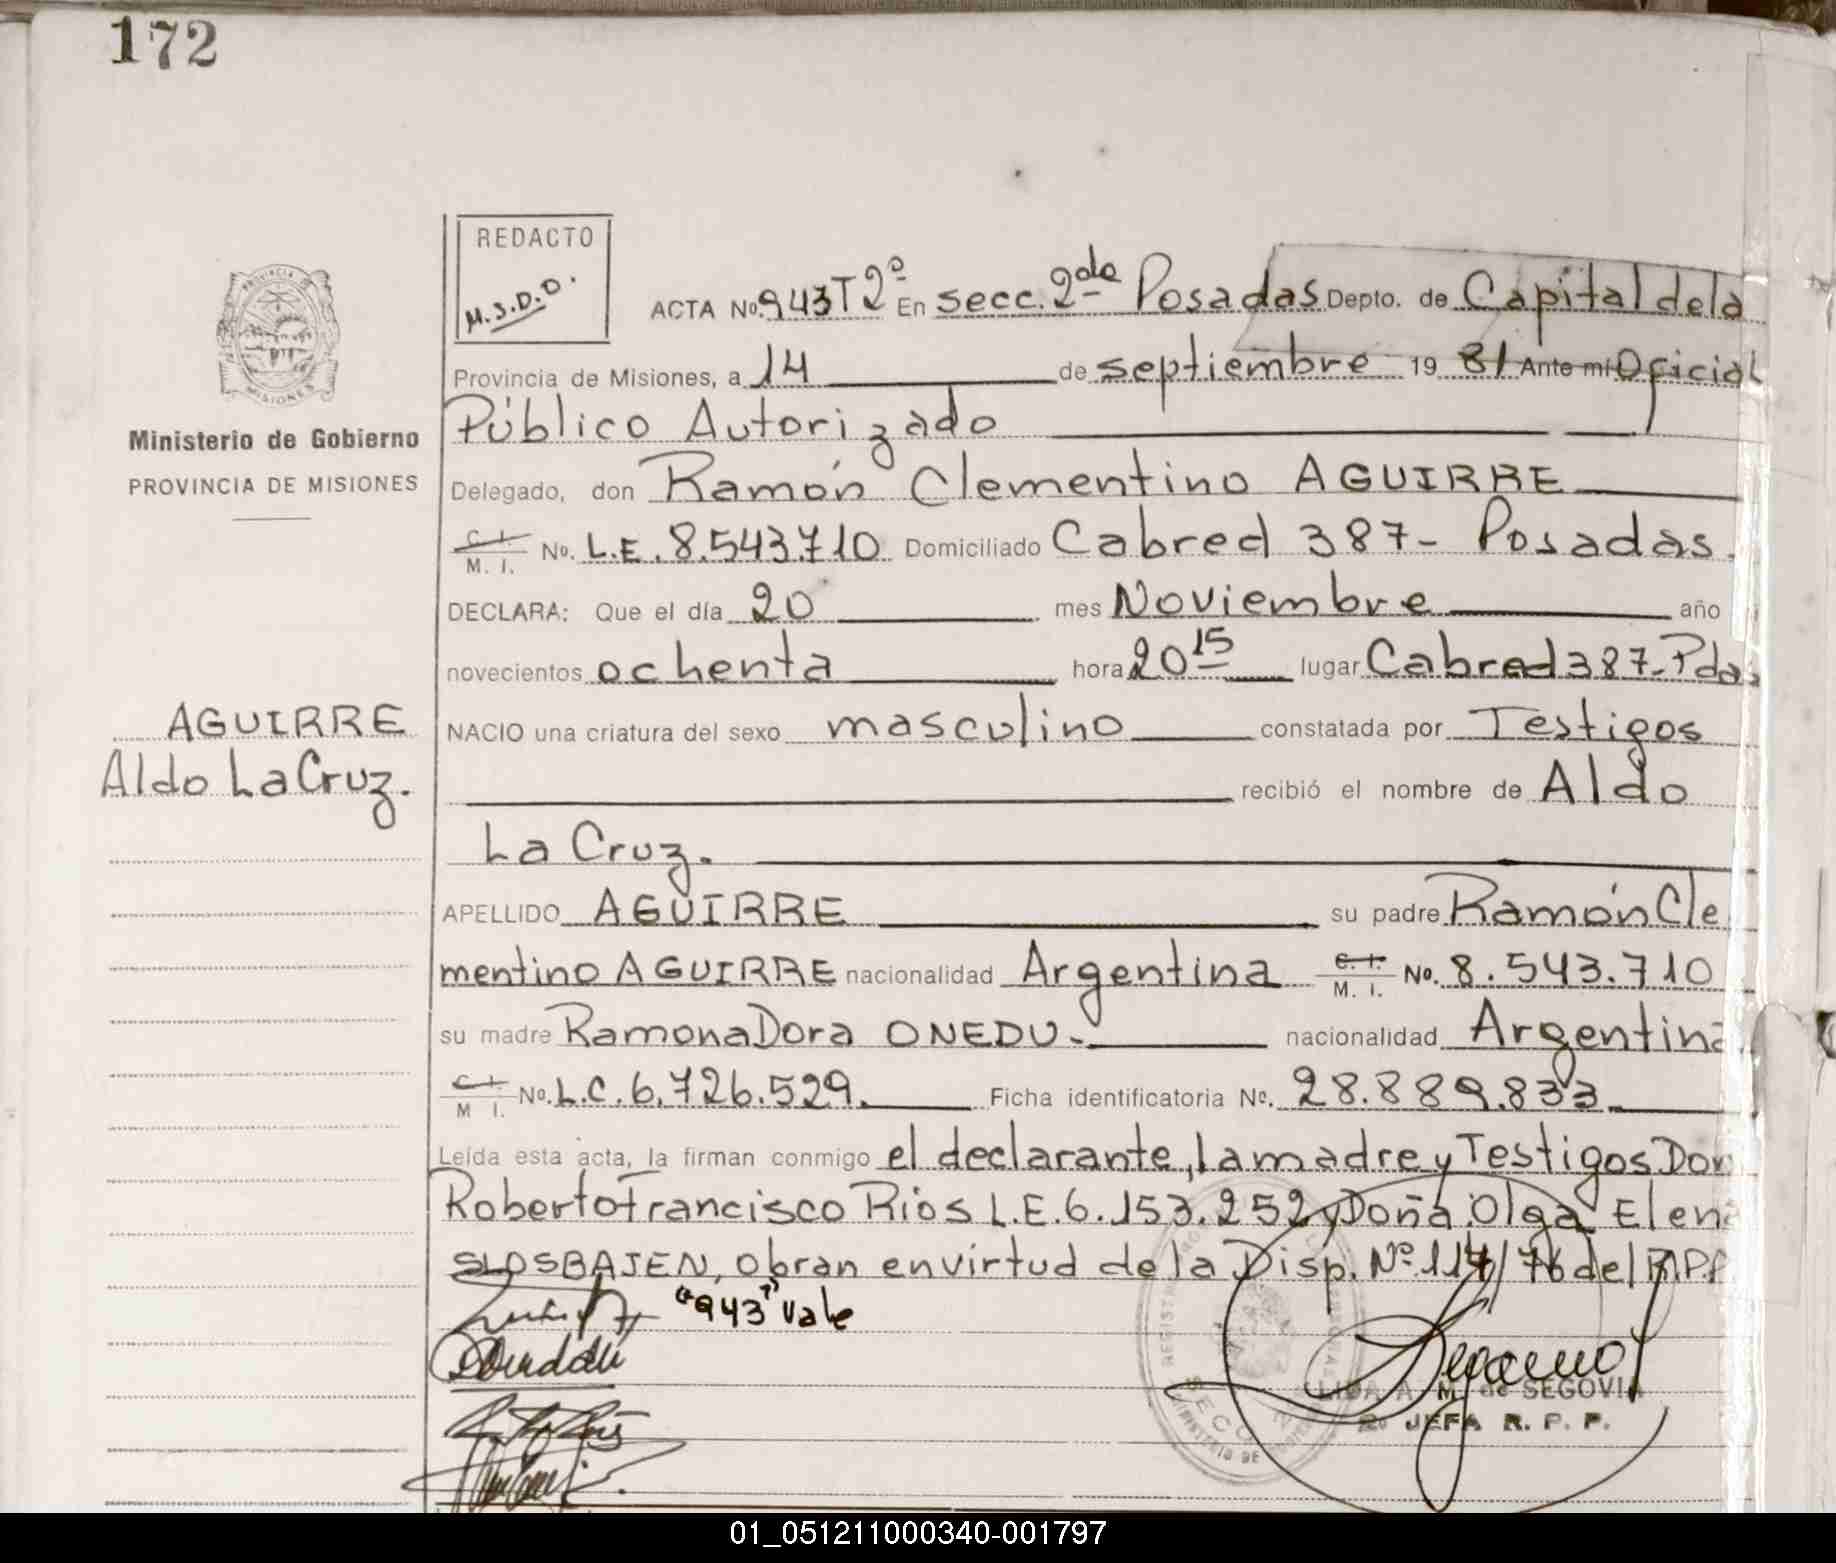 172
REDACTO
M.S.D.D.
ACTA No. 943 T 2º En secc. 2da Posadas Depto. de Capital de la
Provincia de Misiones, a 14 de septiembre 19 81 Ante mi Oficial
Público Autorizado
Delegado, don Ramón Clementino AGUIRRE
C. I. M. I. No. L.E. 8.543.710 Domiciliado Cabred 387- Posadas.
DECLARA: Que el día 20 mes Noviembre año
novecientos ochenta hora 20 15 lugar Cabred 387-Pdas
NACIO una criatura del sexo masculino constatada por Testigos
recibió el nombre de Aldo
La Cruz.
APELLIDO AGUIRRE su padre Ramón Cle
mentino AGUIRRE nacionalidad Argentina C. I. M. I. No. 8.543.710
su madre Ramona Dora ONEDU.- nacionalidad Argentina
C. I. M I. No. L.C. 6.726.529. Ficha identificatoria No. 28.889.833
Leída esta acta, la firman conmigo el declarante, la madre y Testigos Don
Roberto Francisco Rios L.E. 6.153.252 y Doña Olga Elena
SLOSBAJEN, obran en virtud de la Disp. Nº 114/76 del R.P.P
"943" Vale
PROVINCIA
MISIONES
Ministerio de Gobierno
PROVINCIA DE MISIONES
AGUIRRE
Aldo La Cruz.
A. M. de SEGOVIA
2º JEFA R. P. P.
01_051211000340-001797